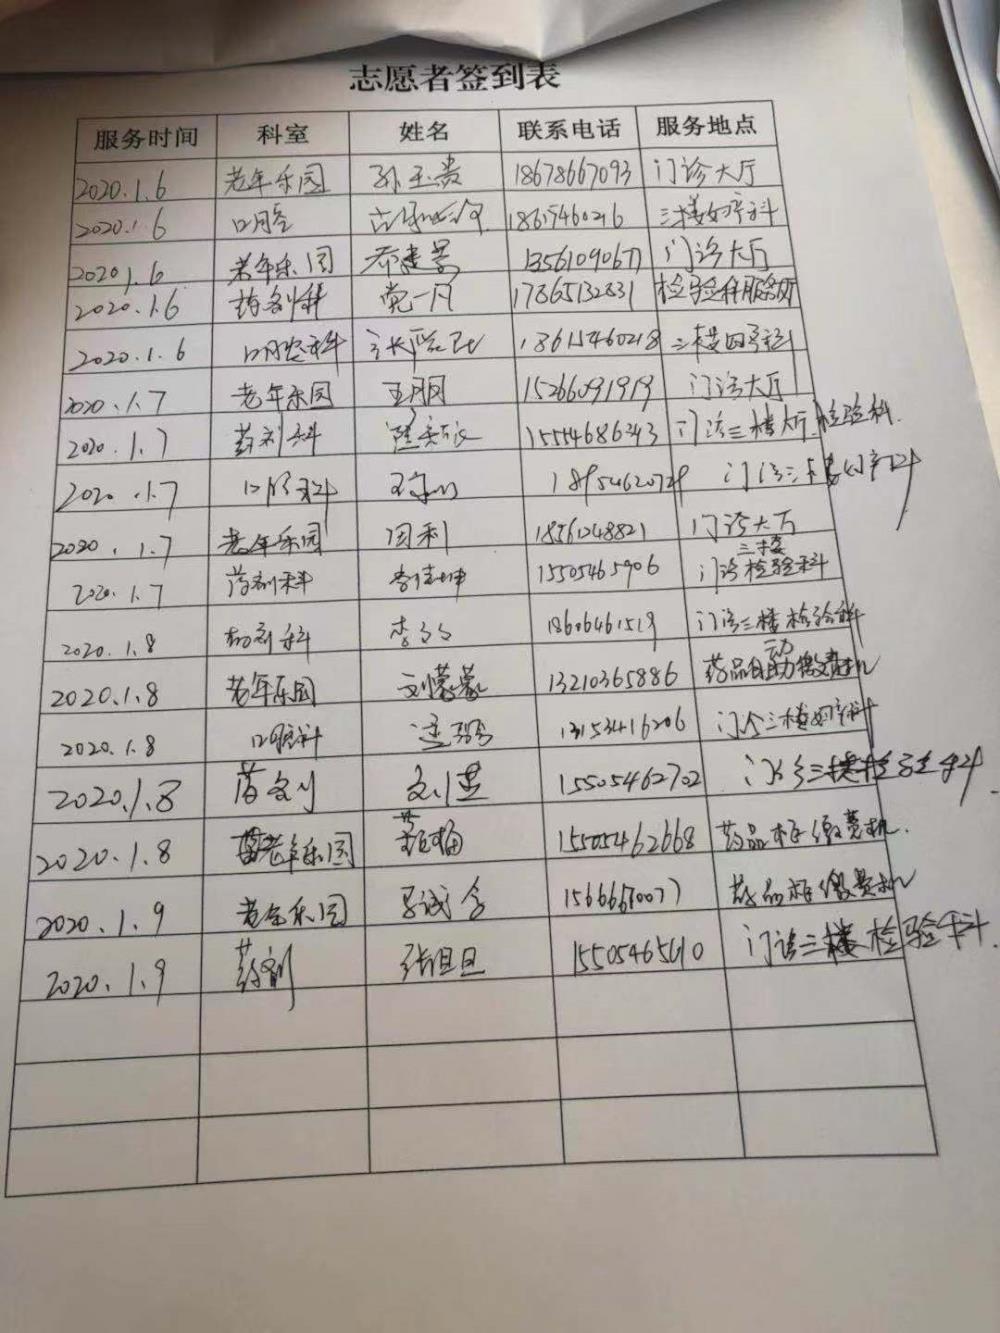 志愿者签到表
服务时间 科室 姓名 联系电话 服务地点
2020.1.6 老年乐园 孙玉贵 18678667093 门诊大厅
2020.1.6 口腔 三楼妇产科
2020.1.6 老年乐园 乔建景 13561090677 门诊大厅
2020.1.6 药剂科 党一凡 17865132831 检验科服务厅
2020.1.6 口腔科 18615460218
2020.1.7 老年乐园 王丹丹 15266091919 门诊大厅
2020.1.7 药剂科 15554686343 门诊三楼大厅检验科.
2020.1.7 口腔科 门诊三楼妇产科
2020.1.7 老年乐园 周利 18561248821 门诊大厅
2020.1.7 药剂科 15505465906 门诊三楼检验科
2020.1.8 药剂科 18606461519 门诊三楼检验科
2020.1.8 老年乐园 刘檬檬 13210365886 药品自动缴费机
2020.1.8 口腔科 13153416206 门诊三楼妇产科
2020.1.8 药剂 15505462702 门诊三楼检验科.
2020.1.8 老年乐园 范楠 15505462668 药品柜缴费机.
2020.1.9 老年乐园 马诚含 药品柜缴费机
2020.1.9 药剂 张旦旦 门诊三楼检验科.